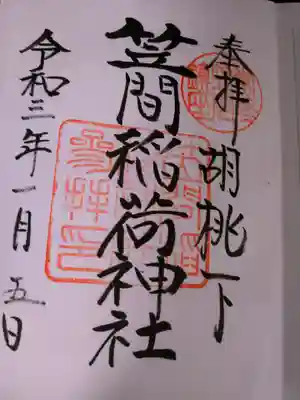 奉拝 胡桃下
笠間稲荷神社
令和三年一月五日